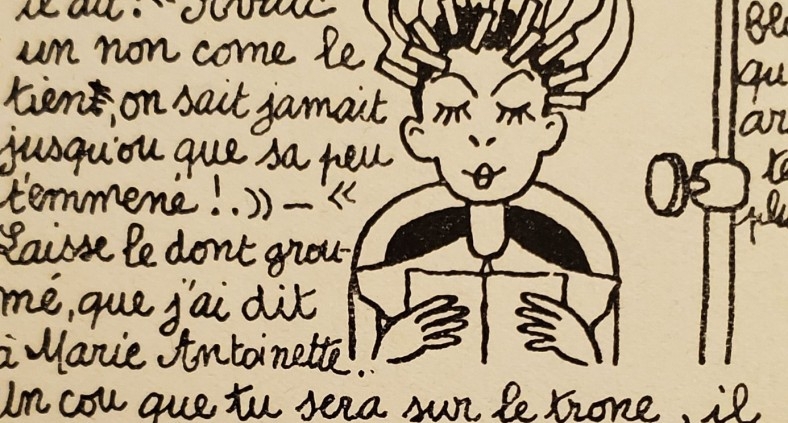 un non come le
tient, on sait jamait
jusqu'ou que sa peu
t'emmené !.)) — «
Laisse le dont grou-
mé, que j'ai dit
à Marie Antoinette..
Un cou que tu sera sur le trone, il
qu
ar
te